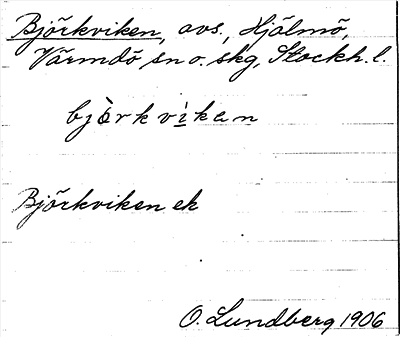 Björkviken, avs., Hjälmö,
Värmdö sn o. skg, Stockh. l.
bjò̈rkvìken
Björkviken ek
O. Lundberg 1906